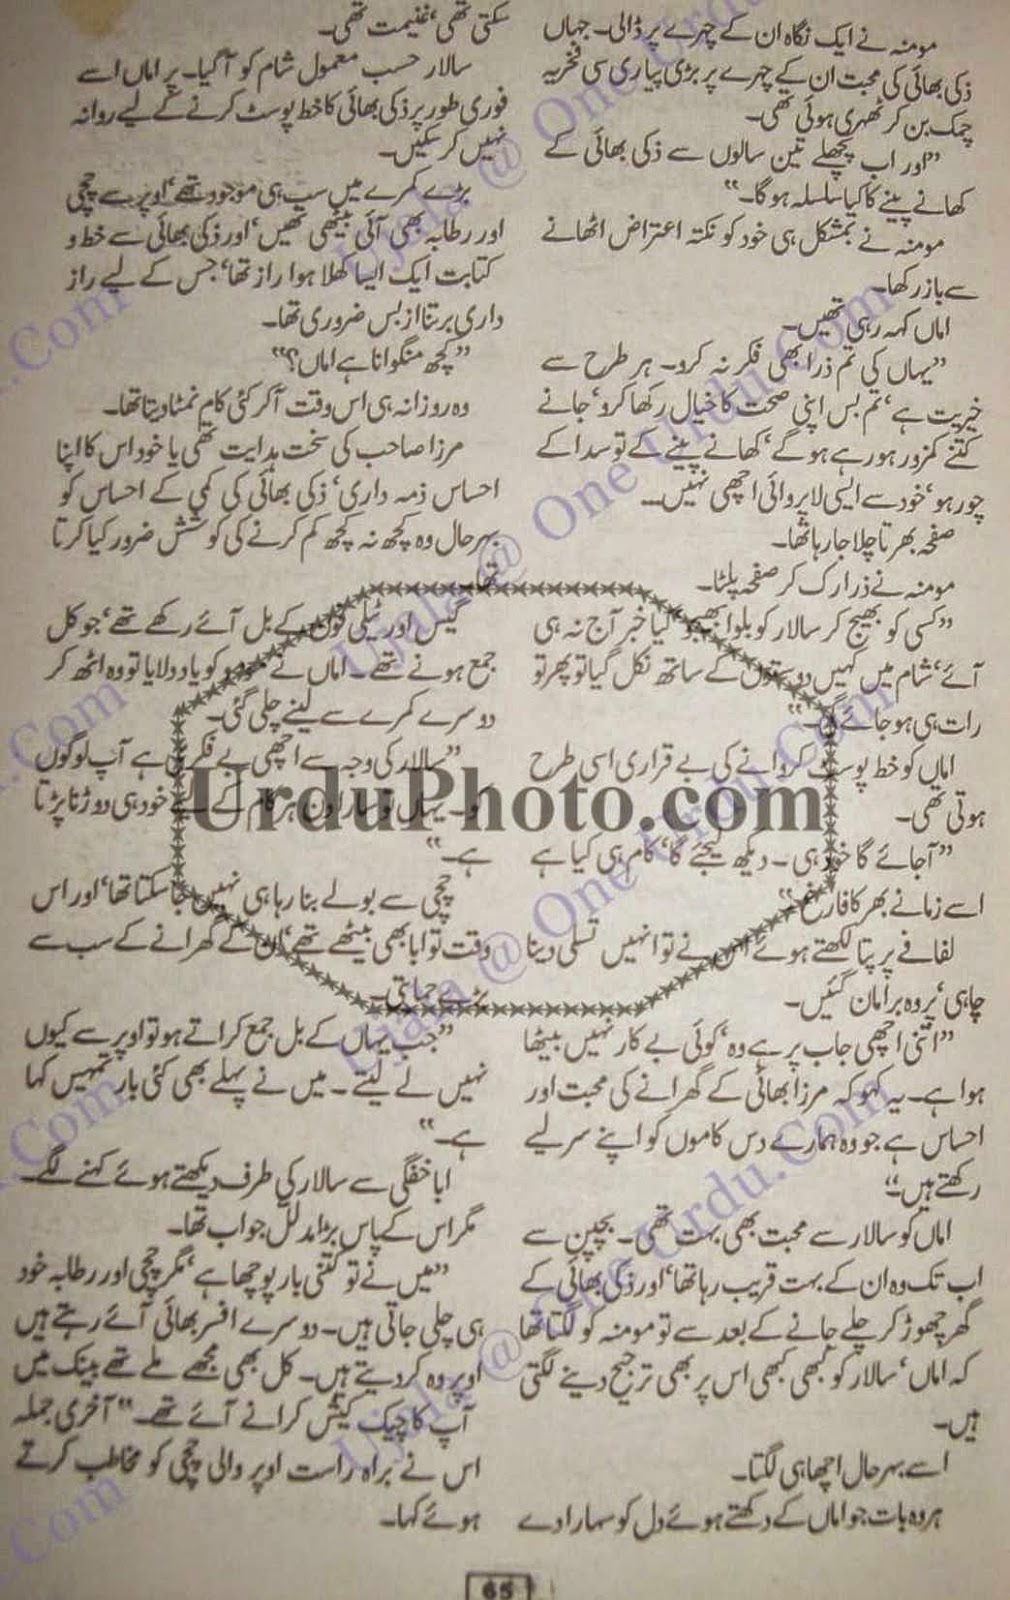 مومنہ نے ایک نگاہ ان کے چہرے پر ڈالی۔ جہاں
ذکی بھائی کی محبت ان کے چہرے پر بڑی پیاری سی فخریہ
چمک بن کر ٹھہری ہوئی تھی۔
”اور اب پچھلے تین سالوں سے ذکی بھائی کے
کھانے پینے کا کیا سلسلہ ہوگا۔“
مومنہ نے بمشکل ہی خود کو نکتہ اعتراض اٹھانے
سے باز رکھا۔
اماں کہہ رہی تھیں۔
”یہاں کی تم ذرا بھی فکر نہ کرو۔ ہر طرح سے
خیریت ہے‘ تم بس اپنی صحت کا خیال رکھا کرو‘ جانے
کتنے کمزور ہو رہے ہوگے‘ کھانے پینے کے تو سدا کے
چور ہو‘ خود سے ایسی لاپروائی اچھی نہیں۔۔۔
صفحہ بھرتا چلا جا رہا تھا۔
مومنہ نے ذرا رک کر صفحہ پلٹا۔
”کسی کو بھیج کر سالار کو بلوا بھیجو کیا خبر آج نہ ہی
آئے‘ شام میں کہیں دوستوں کے ساتھ نکل گیا تو پھر تو
رات ہی ہو جائے گی۔“
اماں کو خط پوسٹ کروانے کی بے قراری اسی طرح
ہوتی تھی۔
”آجائے گا خود ہی۔ دیکھ لیجئے گا‘ کام ہی کیا ہے
اسے زمانے بھر کا فارغ“
لفافے پر پتا لکھتے ہوئے اس نے تو انہیں تسلی دینا
چاہی‘ پر وہ برا مان گئیں۔
”اتنی اچھی جاب پر ہے وہ‘ کوئی بے کار نہیں بیٹھا
ہوا ہے۔ یہ کہو کہ مرزا بھائی کے گھرانے کی محبت اور
احساس ہے جو وہ ہمارے دس کاموں کو اپنے سر لیے
رکھتے ہیں۔“
اماں کو سالار سے محبت بھی بہت تھی۔ بچپن سے
اب تک وہ ان کے بہت قریب رہا تھا‘ اور ذکی بھائی کے
گھر چھوڑ کر چلے جانے کے بعد سے تو مومنہ کو لگتا تھا
کہ اماں‘ سالار کو کبھی کبھی اس پر بھی ترجیح دینے لگتی
ہیں۔
اسے بہرحال اچھا ہی لگتا۔
ہر وہ بات جو اماں کے دکھتے ہوئے دل کو سہارا دے
سکتی تھی‘ غنیمت تھی۔
سالار حسب معمول شام کو آگیا۔ پر اماں اسے
فوری طور پر ذکی بھائی کا خط پوسٹ کرنے کے لیے روانہ
نہیں کر سکیں۔
بڑے کمرے میں سب ہی موجود تھے‘ اوپر سے چچی
اور رطابہ بھی آئی بیٹھی تھیں‘ اور ذکی بھائی سے خط و
کتابت ایک ایسا کھلا ہوا راز تھا‘ جس کے لیے راز
داری برتنا از بس ضروری تھا۔
”کچھ منگوانا ہے اماں؟“
وہ روزانہ ہی اس وقت آکر کئی کام نمٹا دیتا تھا۔
مرزا صاحب کی سخت ہدایت تھی یا خود اس کا اپنا
احساس ذمہ داری‘ ذکی بھائی کی کمی کے احساس کو
بہرحال وہ کچھ نہ کچھ کم کرنے کی کوشش ضرور کیا کرتا
تھا۔
گیس اور ٹیلی فون کے بل آئے رکھے تھے‘ جو کل
جمع ہونے تھے۔ اماں نے کو یاد دلایا تو وہ اٹھ کر
دوسرے کمرے سے لینے چلی گئی۔
”سالار کی وجہ سے اچھی بے فکری ہے آپ لوگوں
کو۔ یہاں تو سارا دن ہر کام کے لیے خود ہی دوڑنا پڑتا
ہے۔“
چچی سے بولے بنا رہا ہی نہیں جا سکتا تھا‘ اور اس
وقت تو ابا بھی بیٹھے تھے‘ ان کے گھرانے کے سب سے
بڑے حمایتی۔
”جب یہاں کے بل جمع کراتے ہو تو اوپر سے کیوں
نہیں لے لیتے۔ میں نے پہلے بھی کئی بار تمہیں کہا
ہے۔“
ابا خفگی سے سالار کی طرف دیکھتے ہوئے کہنے لگے۔
مگر اس کے پاس بڑا مدلل جواب تھا۔
”میں نے تو کتنی بار پوچھا ہے‘ مگر چچی اور رطابہ خود
ہی چلی جاتی ہیں۔ دوسرے افسر بھائی آئے رہتے ہیں
اوپر وہ کر دیتے ہیں۔ کل بھی مجھے ملے تھے بینک میں
آپ کا چیک کیش کرانے آئے تھے۔“ آخری جملہ
اس نے براہ راست اوپر والی چچی کو مخاطب کرتے
ہوئے کہا۔
65
UrduPhoto.com
Ujala @ One Urdu.Com